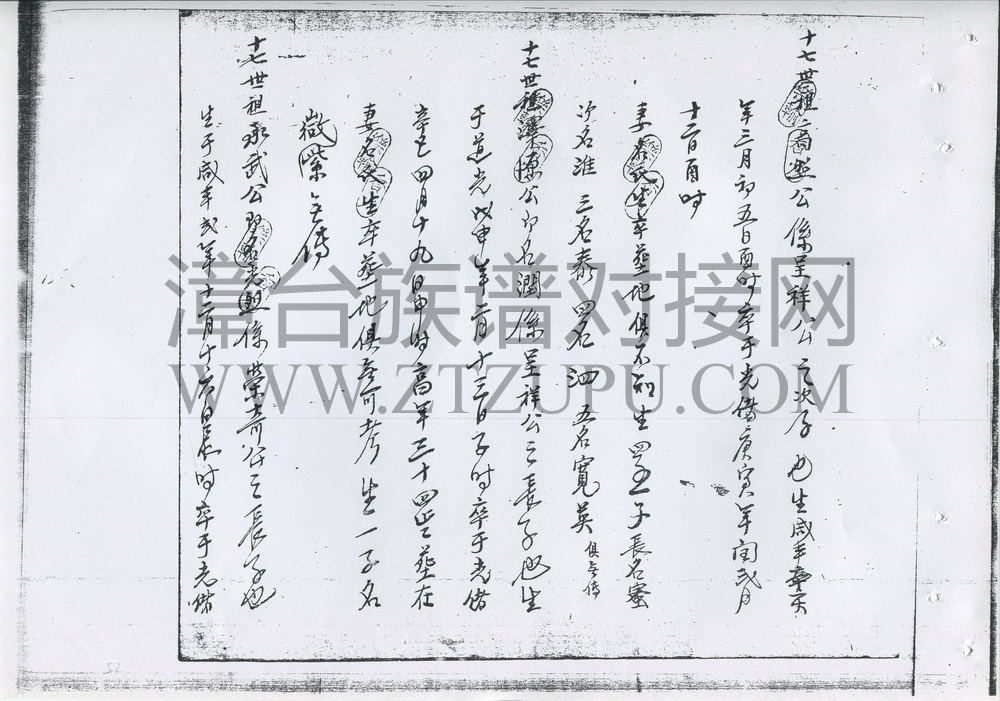 十七世祖 公係呈祥公之次子也生咸丰辛亥
年三月初五日酉时卒于光偹庚寅年闰弍月
十二日酉时
妻 氏生卒塟地俱不知生 五子長名蜜
次名淮 三名泰 四名泗 五名寬英 俱無傳
十七世祖澤 公乃名潤係呈祥公之長子也生
于道光戊申年二月十三日子时卒于光偹
辛 四月十九日申时高年三十四 塟在
妻名氏生卒塟地俱無可考 生一子名
徽 無傳
十七世祖承武公乃名光 係榮 公之長子也
生于咸丰弍年十二月十六日辰时卒于光偹
漳台族谱对接网
WWW.ZTZUPU.COM
52